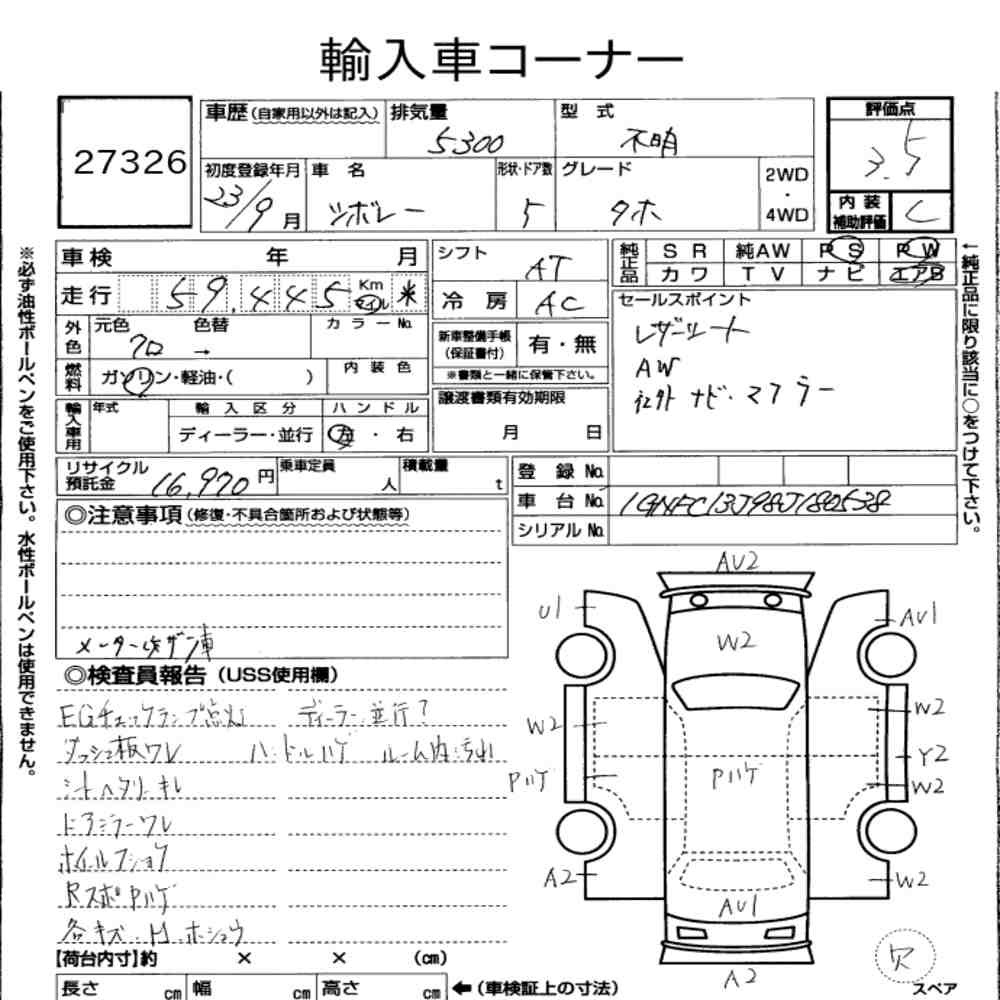 輸入車コーナー
27326
車歴(自家用以外は記入) 排気量 5300 型式 不明 評価点 3.5
初度登録年月 23/9月 車名 シボレー 形状・ドア数 5 グレード タホ 2WD・4WD 内装補助評価 C
車検 年 月 シフト AT 純正品 SR 純AW PS PW
走行 59,445 Km マイル * 冷房 AC カワ TV ナビ エアB
外色 元色 クロ 色替 → カラーNo. 新車整備手帳(保証書付) 有・無 セールスポイント
※書類と一緒に保管下さい。
レザーシート
AW
社外ナビ・マフラー
燃料 ガソリン・軽油・( ) 内装色
輸入車用 年式 輸入区分 ハンドル 譲渡書類有効期限
ディーラー・並行 左・右 月 日
リサイクル預託金 16,970円 乗車定員 人 積載量 t 登録No.
車台No. 1GNFC13J98J180538
シリアルNo.
◎注意事項(修復・不具合箇所および状態等)
メーター改ザン車
◎検査員報告(USS使用欄)
EGチェックランプ点灯 ディーラー並行?
ダッシュ板ワレ ハンドルハゲ ルーム内汚れ
シートヘタリ・キレ
ドアミラーワレ
ホイルフショク
RスポPハゲ
各キズ・H・ホシュウ
AV2
U1 AU1
W2
W2 W2
Y2
Pハゲ Pハゲ W2
A2 W2
AU1
A2
欠
スペア
【荷台内寸】約 × × (cm)
長さ cm 幅 cm 高さ cm ←(車検証上の寸法)
※必ず油性ボールペンをご使用下さい。水性ボールペンは使用できません。
←純正品に限り該当に○をつけて下さい。